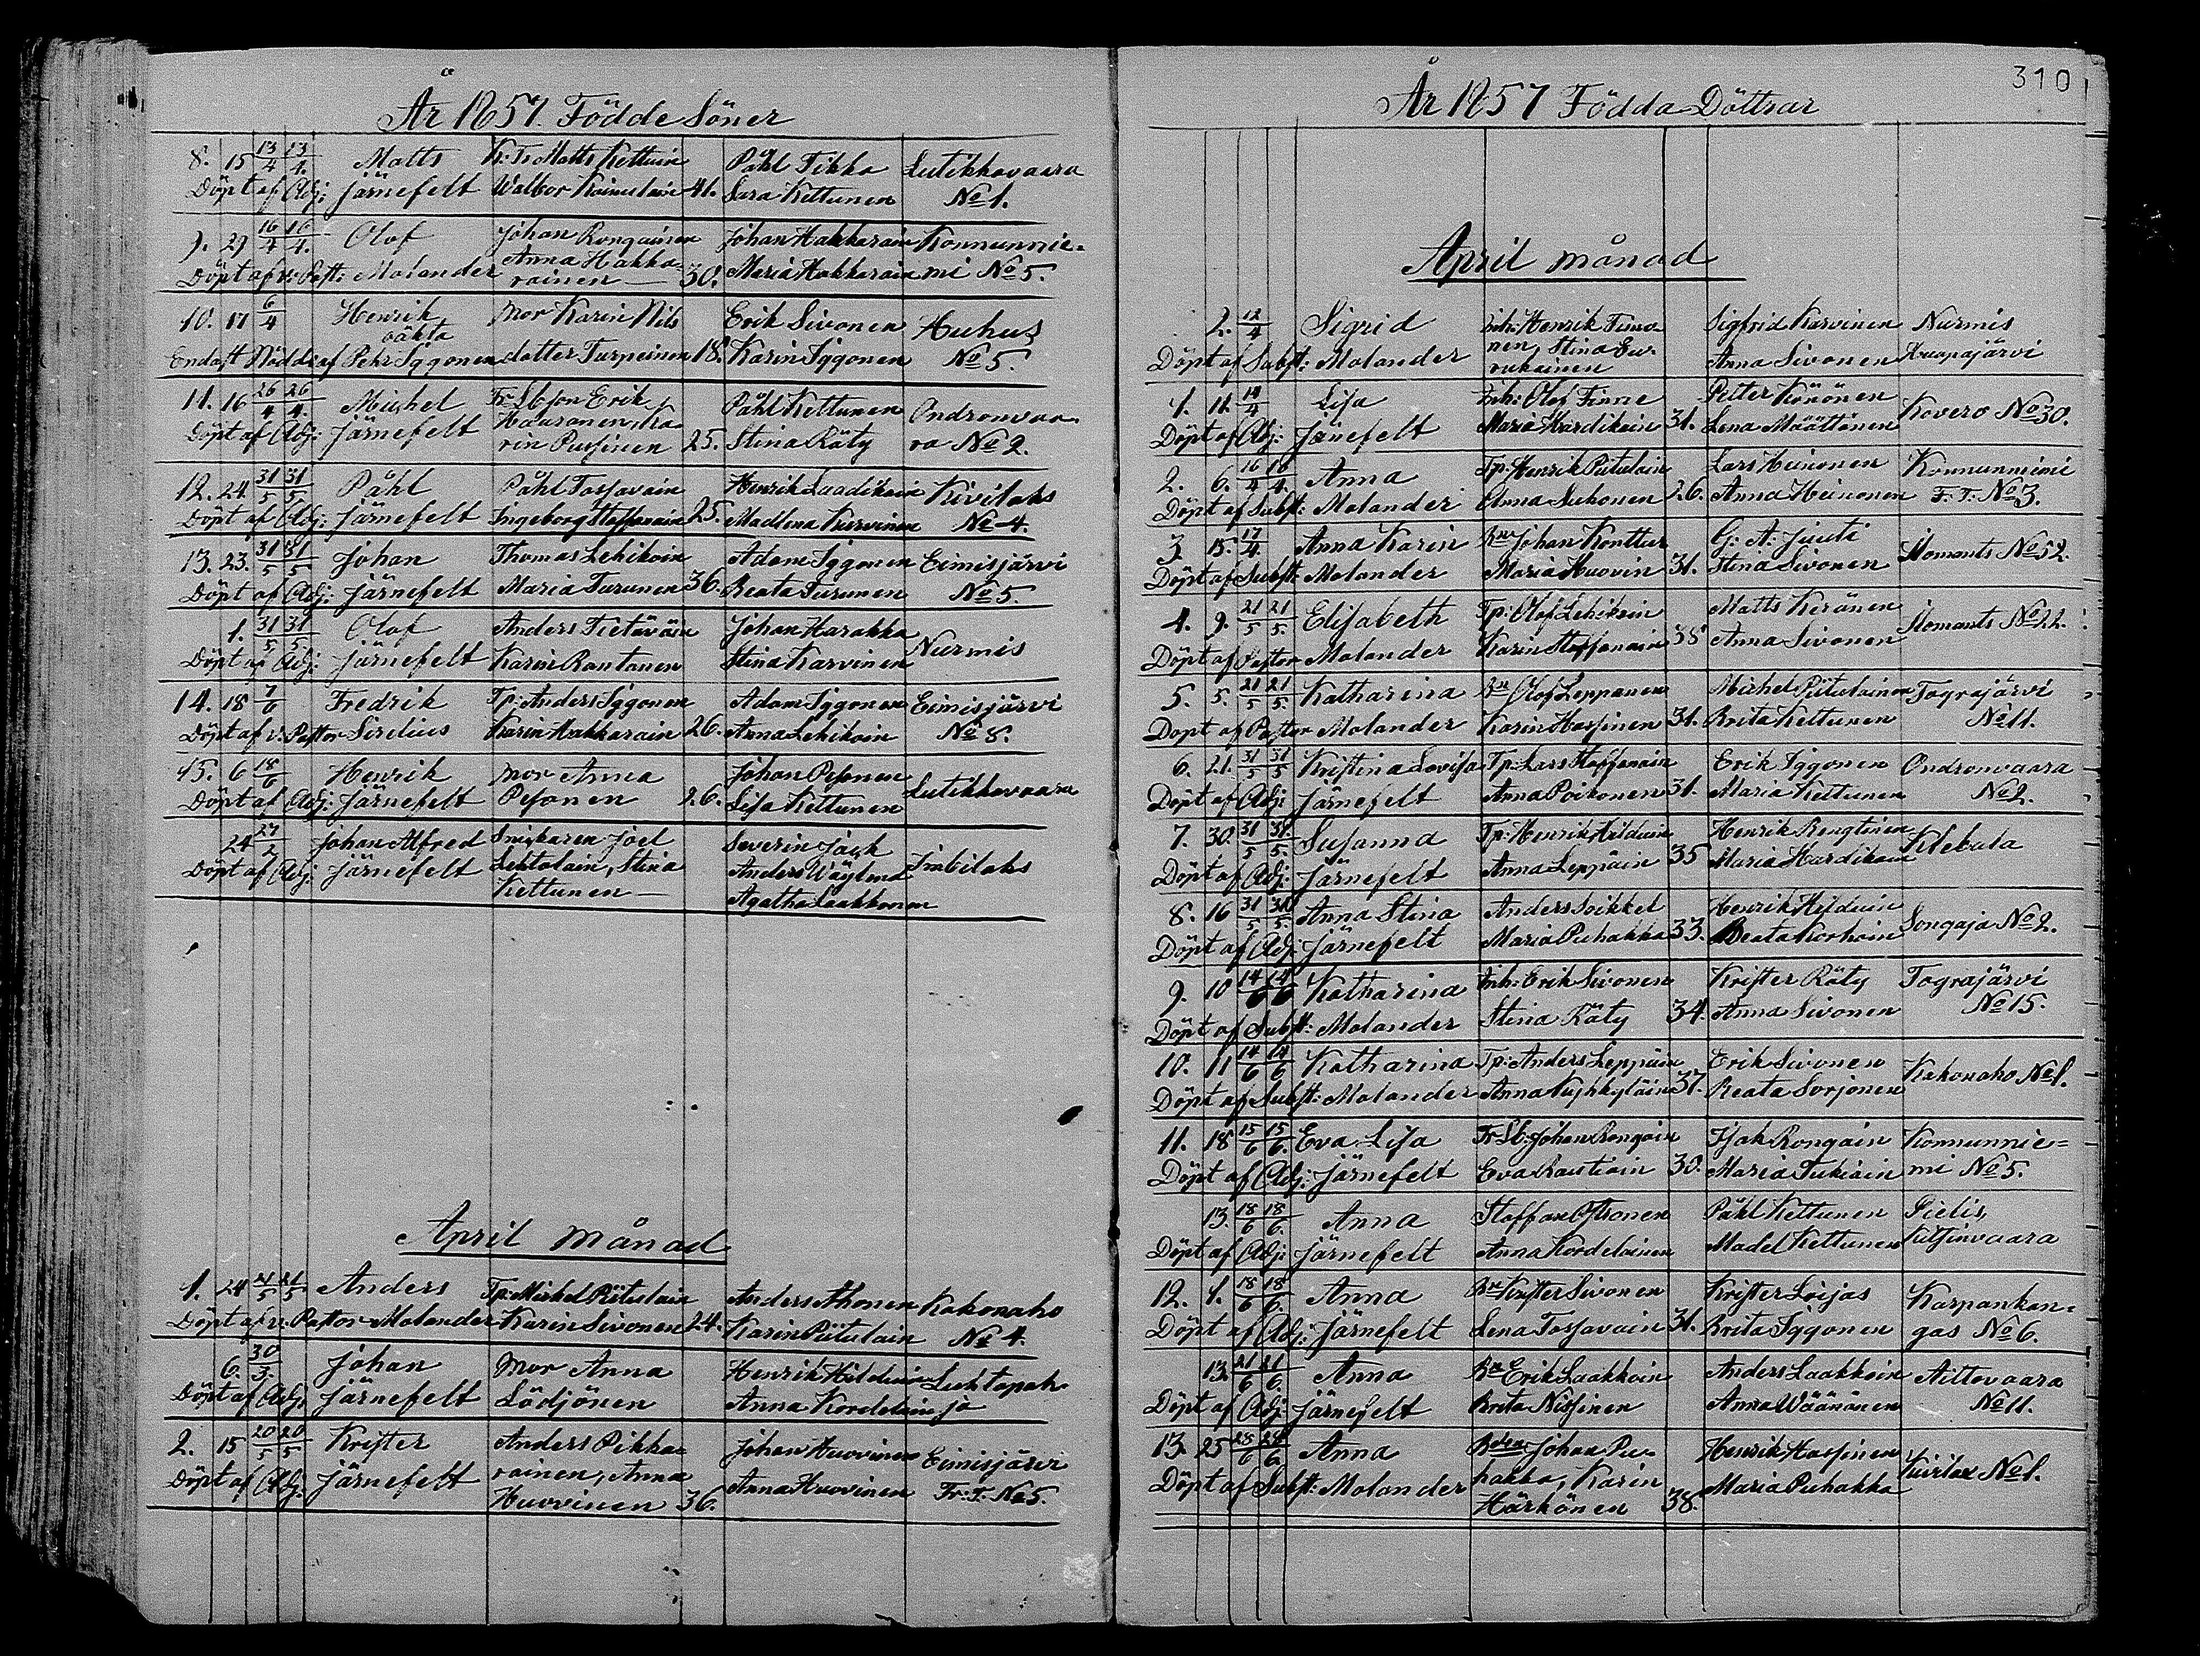 År 1857. Födde Söner
8. 15 13/4 13/4. Matts Kr: Tr Matts Kettuin Påhl Tikka Lutikkavaara
Döpt af Adj: Järnefelt Walbor Kainulain 41. Sara Kettunen No 1.
9. 29 16/4 16/4. Olof Johan Rongainen Johan Hakkarain Konnunnie-
Döpt af v: Past: Molander Anna Hakka-rainen 30. Maria Hakkarain mi No 5.
10. 17 6/4 Henrik oäkta Mor Karin Nils Erik Sivonen Huhus
Endast Nöddöpt af Pehr Iggonen dotter Turpeinen 18. Karin Iggonen No 5.
11. 16 26/4 26/4. Michel Fr: Lbson Erik Påhl Kettunen Ondronvaa-
Döpt af Adj: Järnefelt Haaranen, Ka-rin Pussinen 25. Stina Räty ra No 2.
12. 24 31/5 31/5 Påhl Påhl Tossavain Henrik Laadikain Kivilaks
Döpt af Adj: Järnefelt Ingeborg Hassanain 25. Madlena Kurvinen No 4.
13. 23. 31/5 31/5 Johan Thomas Lehikoin Adam Iggonen Eimisjärvi
Döpt af Adj: Järnefelt Maria Turunen 36. Beata Turunen No 5.
1. 31/5 31/5. Olof Anders Tietäväin Johan Harakka Nurmis
Döpt af Adj: Järnefelt Karin Rantanen Stina Karvinen
14. 18 7/6 Fredrik Tp: Anders Iggonen Adam Iggonen Eimisjärvi
Döpt af v: Pastor Sirelius Karin Hakkarain 26. Anna Lehikoin No 8.
15. 6 18/6 Henrik Mor Anna Johan Pesonen Lutikkavaara
Döpt af Adj: Järnefelt Pesonen 26. Lisa Kettunen
24 27/2 Johan Alfred Snickaren Joel Severin Jack Imbilaks
Döpt af Adj: Järnefelt Lehtolain, Stina Anders Wäylmä
Kettunen Agatha Laakkonen
April månad
1. 24 21/5 21/5 Anders Tp: Michel Piitulain Anders Ahonen Kakonaho
Döpt af v: Pastor Molander Karin Sivonen 24. Karin Piitulain No 4.
6. 30/3. Johan Mor Anna Henrik Hilduin Luhtapoh-
Döpt af Adj: Järnefelt Lödjönen Anna Kordelain ja
2. 15 20/5 20/5 Krister Anders Pikka- Johan Huovinen Eimisjärvi
Döpt af Adj: Järnefelt rainen, Anna Anna Huovinen Fr: T. No 5.
Huovinen 36.
310
År 1857 Födda Döttrar
April månad
2. 12/4 Sigrid Inh: Henrik Timo- Sigfrid Karvinen Nurmis
Döpt af Subst: Molander nen, Stina Anna Sivonen Kuapajärvi
vakainen
1. 11. 14/4 Lisa Inh: Olof Finne Petter Könönen Kovero No 30.
Döpt af Adj: Järnefelt Maria Hardikain 31. Lena Määttänen
2. 6. 16/4 16/4. Anna Tp: Henrik Piitulain Lars Heinonen Konnunniemi
Döpt af Subst: Molander Anna Suhonen 26. Anna Heinonen F: T. No 3.
3. 15. 17/4. Anna Karin Bn Johan Konttur G: A: Juuti Ilomants No 52.
Döpt af Subst: Molander Maria Huovin 31. Stina Sivonen
4. 9. 21/5 21/5. Elisabeth Tp: Olof Lehikoin Matts Keränen Ilomants No 22.
Döpt af Pastor Molander Karin Hassanain 38 Anna Sivonen
5. 5. 21/5 21/5. Katharina Bn Olof Leppänen Michel Piitulainen Tograjärvi
Döpt af Pastor Molander Karin Hassinen 31. Brita Kettunen No 11.
6. 21. 31/5 31/5 Kristina Lovisa Tp: Lars Hassanain Erik Iggonen Ondronvaara
Döpt af Adj: Järnefelt Anna Poikonen 31. Maria Kettunen No 2.
7. 30. 31/5 31/5. Susanna Tp: Henrik Hilduin Henrik Rengtinen Klebala
Döpt af Adj: Järnefelt Anna Leppäin 35 Maria Hardikain
8. 16 31/5 31/5. Anna Stina Anders Soikkel Henrik Hilduin Songaja No 2.
Döpt af Adj: Järnefelt Maria Puhakka 33. Beata Korhoin
9. 10 14/6 14/6 Katharina Inh: Erik Sivonen Krister Räty Tograjärvi
Döpt af Subst: Molander Stina Räty 34. Anna Sivonen No 15.
10. 11 14/6 14/6 Katharina Tp: Anders Leppäin Erik Sivonen Kakonaho No 1.
Döpt af Subst: Molander Anna 37. Beata Sorjonen
11. 18 15/6 15/6. Eva Lisa Fr Lb: Johan Rongain Isak Rongain Konnunnie-
Döpt af Adj: Järnefelt Eva Rautiain 30. Maria Tukiain mi No 5.
13. 18/6 18/6. Anna Staffan Astronen Påhl Kettunen Pielis,
Döpt af Adj: Järnefelt Anna Kordelainen Madel Kettunen Kitsinvaara
12. 4. 18/6 18/6. Anna Bn Krister Sivonen Krister Loijas Karpankan-
Döpt af Adj: Järnefelt Lena Tossavain 31. Brita Iggonen gas No 6.
13. 21/6 21/6. Anna Bn Erik Laakkoin Anders Laakkoin Aittovaara
Döpt af Adj: Järnefelt Brita Nissinen Anna Wäänänen No 11.
13. 25 28/6 28/6 Anna Bden Johan Pu- Henrik Hassinen Kuirlax No 1.
Döpt af Subst: Molander hakka, Karin Maria Puhakka
Härkönen 38.